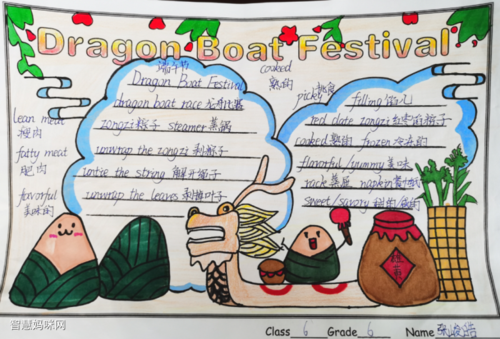 Dragon Boat Festival
端午节
Dragon Boat Festival
dragon boat race 龙舟比赛
zongzi 粽子 steamer 蒸锅
unwrap the zongzi 剥粽子
untie the string 解开绳子
unwrap the leaves 剥掉叶子
lean meat
瘦肉
fatty meat
肥肉
flavorful
美味的
cooked
熟的
picky
filling 馅儿
red date zongzi 红枣的粽子
cooked 熟的 frozen 冷冻的
flavorful/yummy 美味
rack 蒸屉 napkin 餐巾纸
sweet/savory 甜的/咸的
雄黄
智慧妈咪网
Class 6 Grade 6 Name